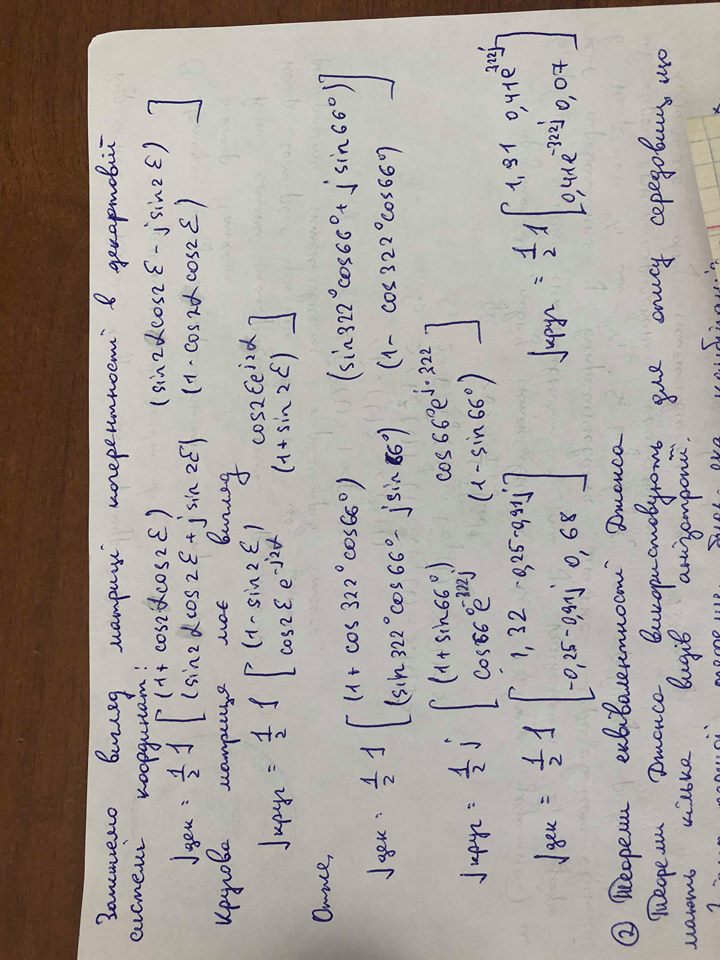 Запишемо вигляд матриці когерентності в декартовій
системі координат:
J дек = 1/2 J [ (1 + cos2α cos2ε) (sin2α cos2ε - j sin2ε)
(sin2α cos2ε + j sin2ε) (1 - cos2α cos2ε) ]
Кругова матриця має вигляд
J круг = 1/2 J [ (1 - sin2ε) cos2ε e^{j2α}
cos2ε e^{-j2α} (1 + sin2ε) ]
Отже,
J дек = 1/2 J [ (1 + cos322° cos66°) (sin322° cos66° + j sin66°)
(sin322° cos66° - j sin66°) (1 - cos322° cos66°) ]
J круг = 1/2 j [ (1 + sin66°) cos66° e^{j·322}
cos66° e^{-322j} (1 - sin66°) ]
J дек = 1/2 J [ 1,32 -0,25-0,91j
-0,25-0,91j 0,68 ]
J круг = 1/2 J [ 1,91 0,41e^{322j}
0,41e^{-322j} 0,07 ]
② Теореми еквівалентності Джонса
Теореми Джонса використовують для опису середовищ що
мають кілька видів анізотропії.